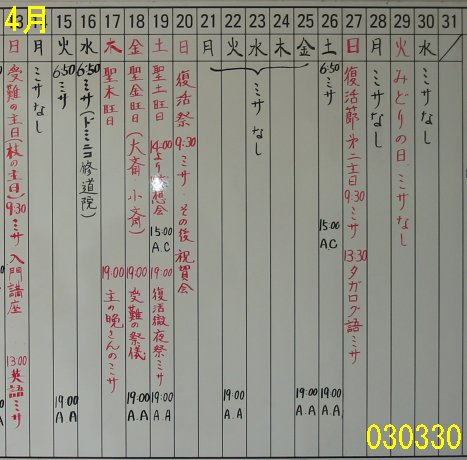 4月
3 14 15 16 17 18 19 20 21 22 23 24 25 26 27 28 29 30 31
日 月 火 水 木 金 土 日 月 火 水 木 金 土 日 月 火 水
受難の主日(枝の主日) 9:30 ミサ 入門講座 13:00 英語ミサ
ミサなし
6:50 ミサ 19:00 A.A
6:50 ミサ(ドミニコ修道院)
聖木曜日 19:00 主の晩さんのミサ
聖金曜日(大斎 小斎) 19:00 受難の祭儀 19:00 A.A
聖土曜日 14:00より 想会 15:00 A.C 19:00 復活徹夜祭ミサ 19:00 A.A
復活祭 9:30 ミサ その後 祝賀会
ミサなし
19:00 A.A
19:00 A.A
6:50 ミサ 15:00 A.C 19:00 A.A
復活節第二主日 9:30 ミサ 13:30 タガログ語ミサ
ミサなし
みどりの日 ミサなし
ミサなし
030330